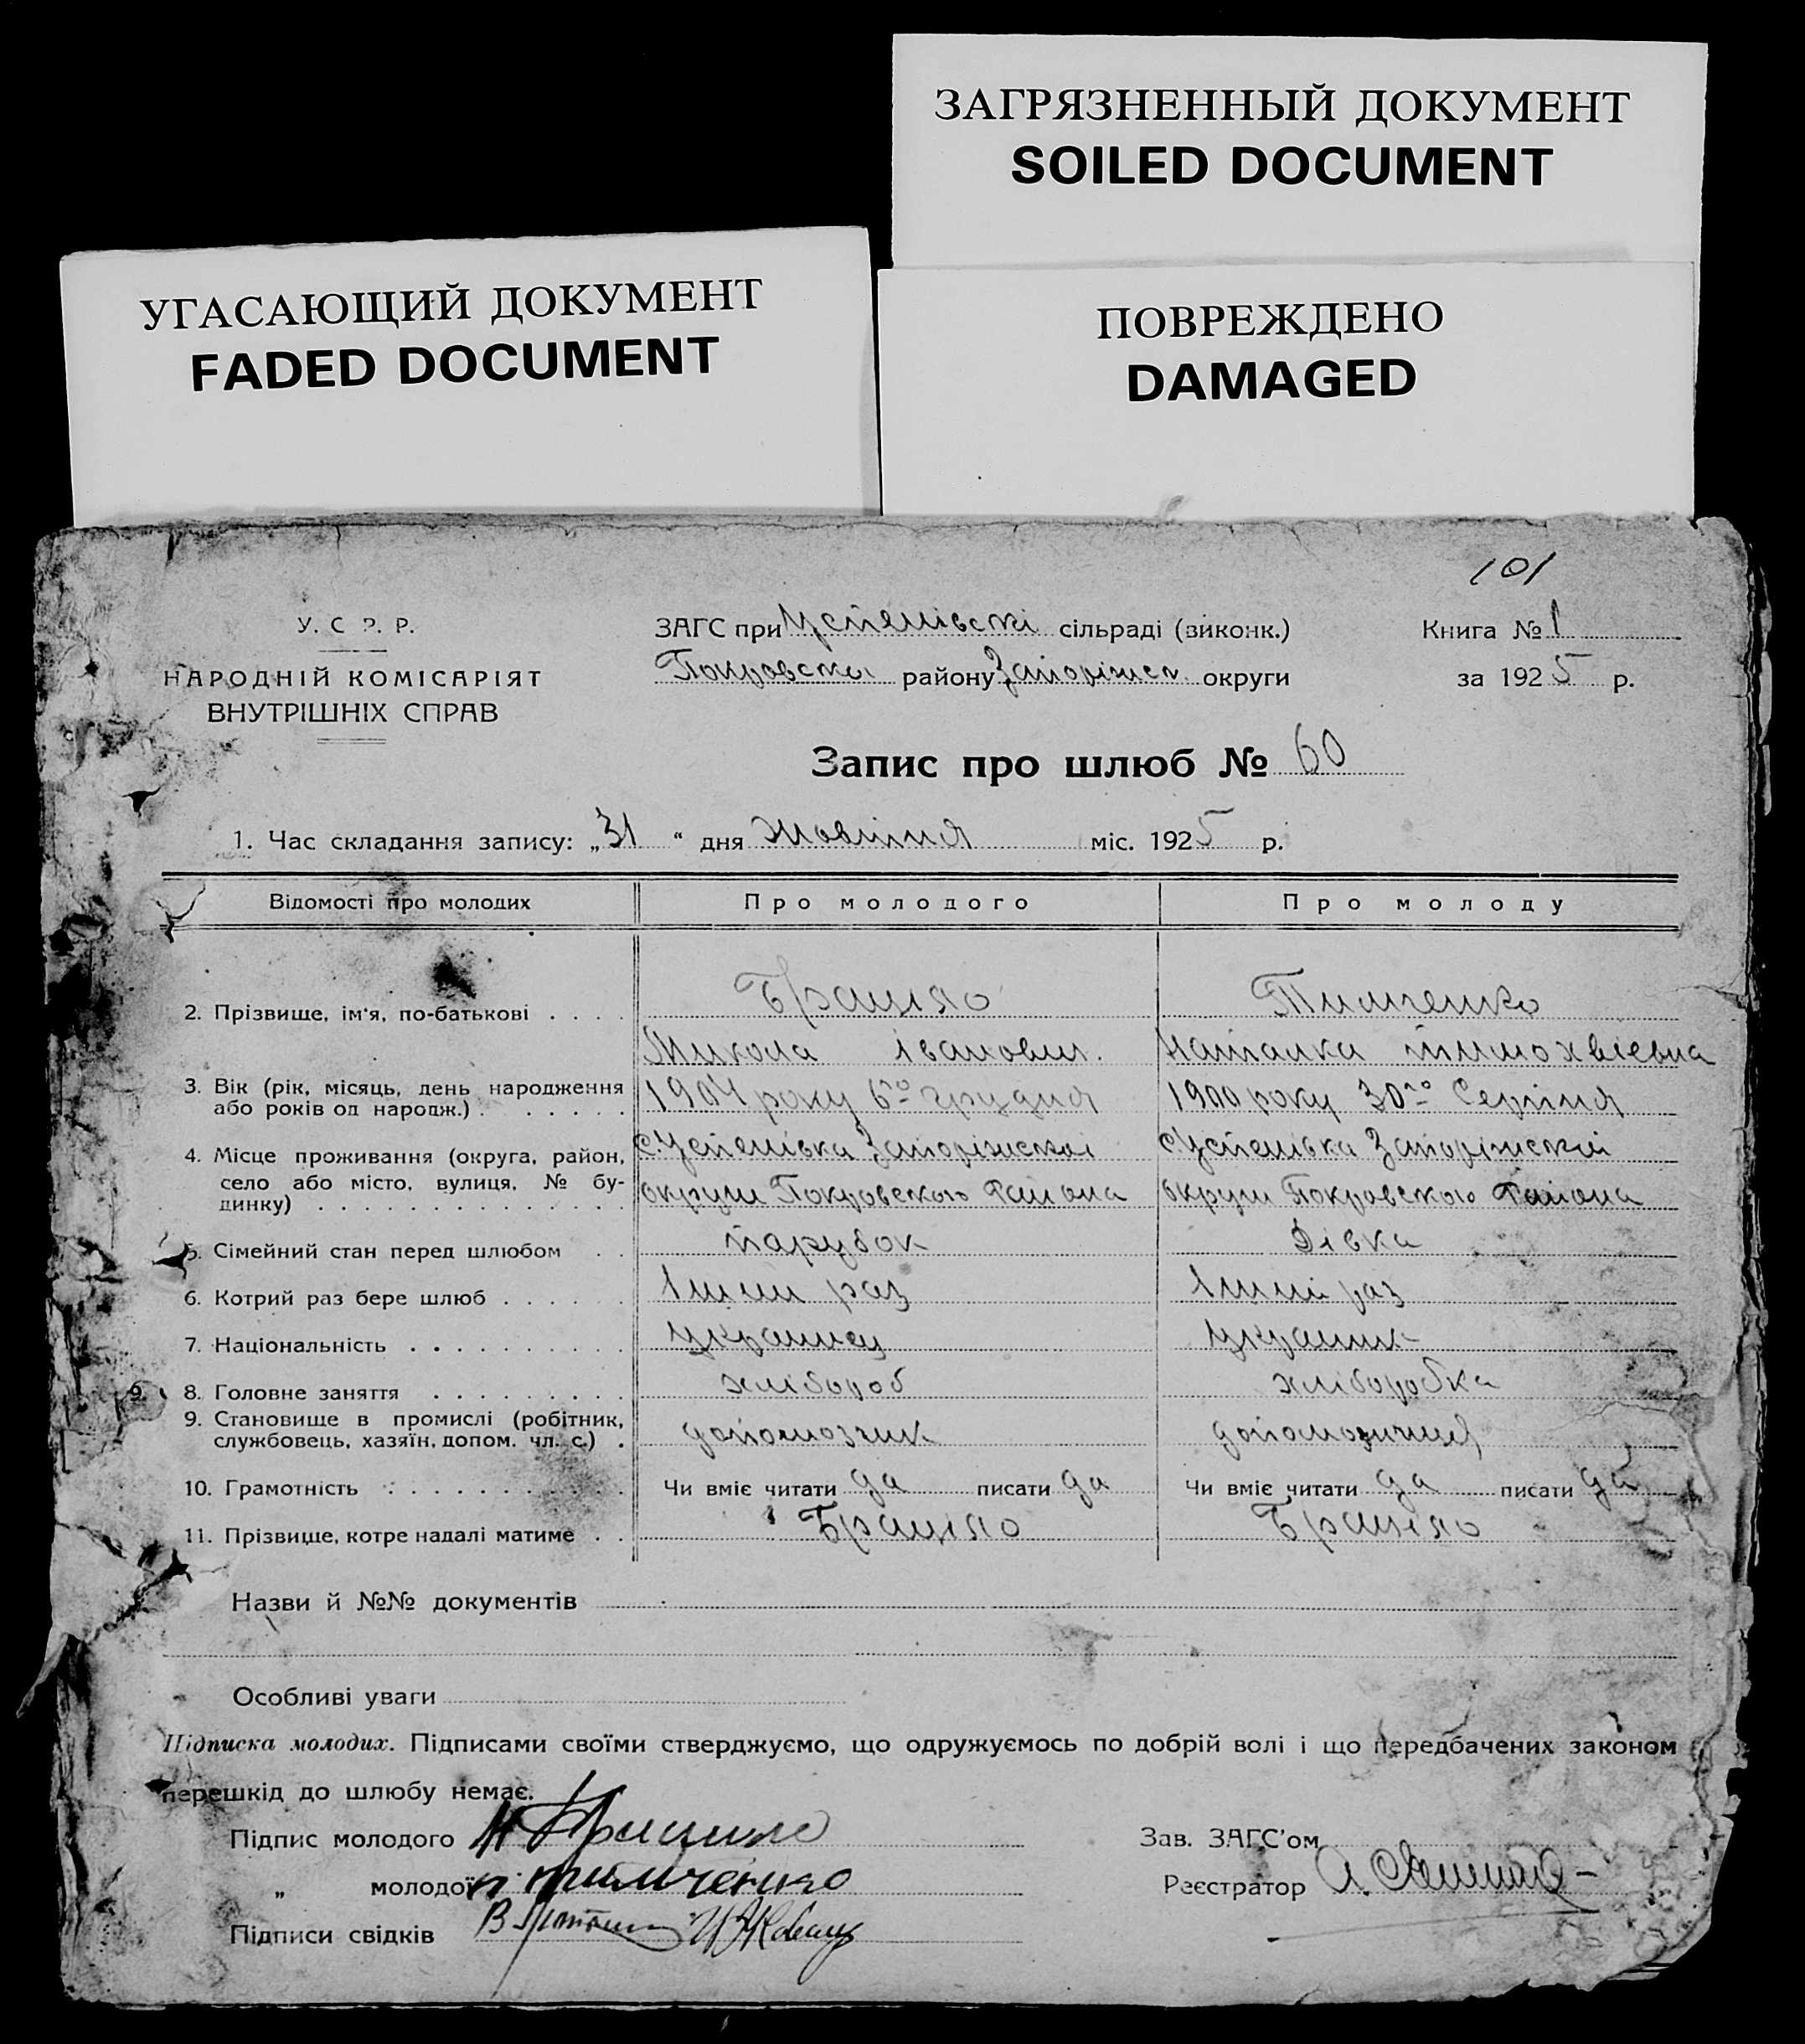 ЗАГРЯЗНЕННЫЙ ДОКУМЕНТ
SOILED DOCUMENT
УГАСАЮЩИЙ ДОКУМЕНТ
FADED DOCUMENT
ПОВРЕЖДЕНО
DAMAGED
101
У. С. Р. Р.
НАРОДНІЙ КОМІСАРІЯТ
ВНУТРІШНІХ СПРАВ
ЗАГС при Успенівські сільраді (виконк.)
Покровськ району Запоріжськ округи
Книга № 1
за 1925 р.
Запис про шлюб № 60
1. Час складання запису: „31" дня Жовтня міс. 1925 р.
Відомості про молодих Про молодого Про молоду
2. Прізвище, ім'я, по-батькові . . . . Браціло Тимченко
Микола Іванович. Наталка Тимохвієвна
3. Вік (рік, місяць, день народження 1904 року 6го Грудня 1900 року 30го Серпня
або років од народж.) . . . . . .
4. Місце проживання (округа, район, с. Успенівка Запоріжської с. Успенівка Запоріжської
село або місто, вулиця, № бу- округи Покровського Района округи Покровського Района
динку) . . . . . . . . . . . . . .
5. Сімейний стан перед шлюбом . . парубок Дівка
6. Котрий раз бере шлюб . . . . . . 1ший раз 1ший раз
7. Національність . . . . . . . . . . українец україник
9. 8. Головне заняття . . . . . . . . . хлібороб хліборобка
9. Становище в промислі (робітник,
службовець, хазяїн, допом. чл. с.) . допомозчик
10. Грамотність . . . . . . . . . . . Чи вміє читати да писати да Чи вміє читати да писати да
11. Прізвище, котре надалі матиме . . Браціло Браціло
Назви й №№ документів
Особливі уваги
Підписка молодих. Підписами своїми стверджуємо, що одружуємось по добрій волі і що передбачених законом
перешкід до шлюбу немає.
Підпис молодого Н Браціло
Зав. ЗАГС'ом
„ молодої Н Тимченко
Реєстратор А.
Підписи свідків